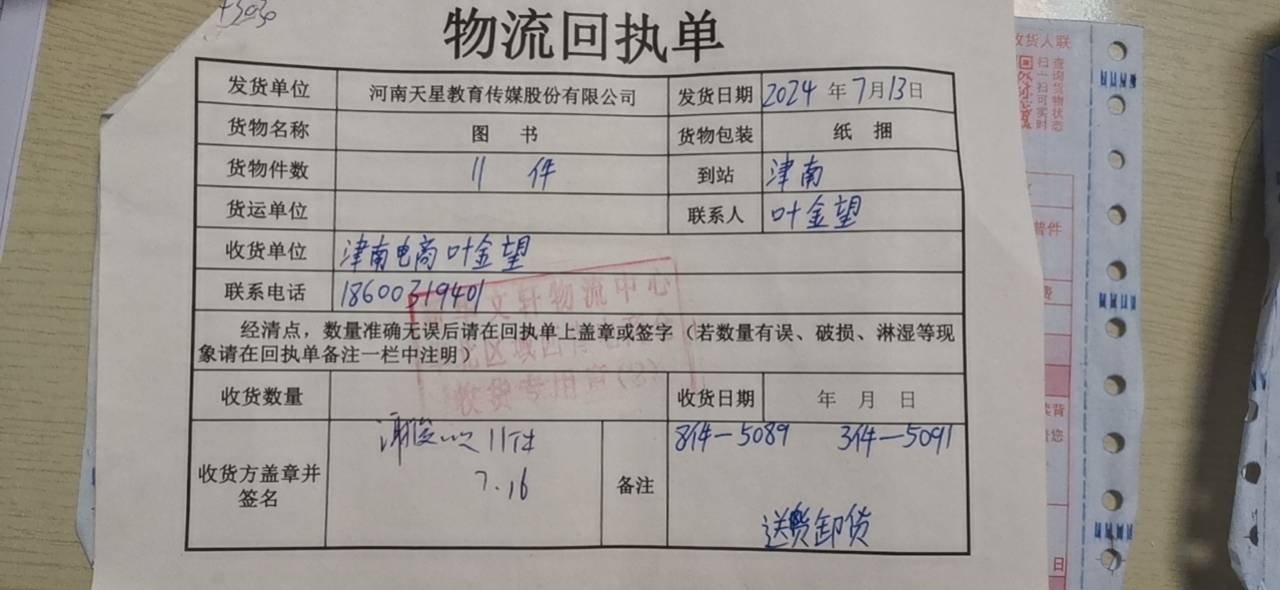 物流回执单
发货单位 河南天星教育传媒股份有限公司 发货日期 2024 年 7月13日
货物名称 图 书 货物包装 纸 捆
货物件数 11 件 到站 津南
货运单位 联系人 叶金望
收货单位 津南电商叶金望
联系电话 18600319401
经清点，数量准确无误后请在回执单上盖章或签字（若数量有误、破损、淋湿等现
象请在回执单备注一栏中注明）
文轩物流中心
收货专用章(8)
收货数量 收货日期 年 月 日
收货方盖章并
签名
11件
7.16
备注
8件—5089 3件—5091
送货卸货
收货人联
查询货物状态
扫一扫可实时
普件
费
日